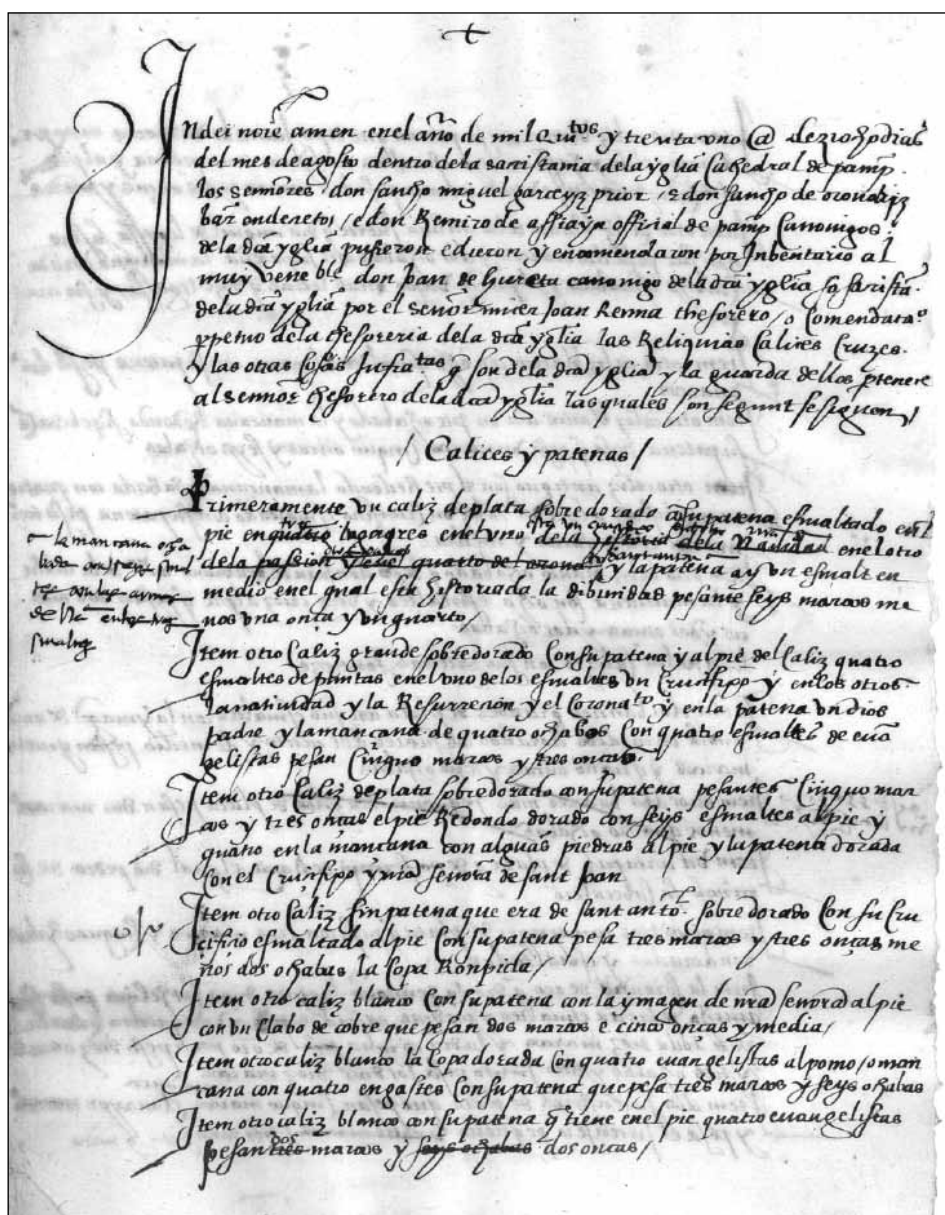 In dei noīe amen en el año de mil quitos y treynta uno @ deziochodias
del mes de agosto dentro de la sacristania de la yglia Cathedral de pamp.
los sennores don sancho miguel garceyz prior, e don sancho de
e don Remiro de official de pamp Canonigos
de la dca yglia pusieron e dieron y encomendaron por Inbentario al
muy veneble don Joan de Hureta canonigo de la dca yglia so sacrista
de la dca yglia por el sennor micer Joan Renna thesorero, o Comendatao
ppetuo de la thesoreria de la dca yglia las Reliquias Calices Cruzes
y las otras cosas Infratas q son de la dca yglia y la guarda dellos ptenece
al sennor thesorero de la dca yglia las quales son segunt se siguen /
/ Calices y patenas /
Primeramente un caliz de plata sobredorado con su patena esmaltado en el
pie en quatro en el uno de la historia de la Natiuidad en el otro
de la passion y en el quarto del y la patena ay un esmalt en
medio en el qual esta historiada la dibinidad pesante seys marcos me
nos una onça y un quarto /
la mancana ocha
bada con seys smal
tes con las armas
smaltes
Item otro Caliz grande sobredorado Con su patena y al pie del Caliz quatro
esmaltes de puntas en el uno de los esmaltes un Crucifixo y en los otros
la natiuidad y la Resurrecion y el Coronato y en la patena un dios
padre y la mancana de quatro ochabos Con quatro esmaltes de euā
gelistas pesan Cinquo marcos y tres onças.
Item otro Caliz de plata sobredorado con su patena pesantes Cinquo mar
cos y tres onças el pie Redondo dorado con seys esmaltes al pie y
quatro en la mancana con alguas piedras al pie y la patena dorada
Con el Crucifixo y nra señora de sant Joan
Item otro Caliz sin patena que era de sant anton sobredorado Con su Cru
cifixio esmaltado al pie Con su patena pesa tres marcos y tres onças me
nos dos ochabas la Copa Ronpida /
Item otro caliz blanco Con su patena con la ymagen de nra señora al pie
con un Clabo de cobre que pesan dos marcos e cinco onças y media /
Item otro caliz blanco la Copa dorada con quatro euangelistas al pomo, o man
cana con quatro engastes Con su patena que pesa tres marcos y seys ochabas
Item otro caliz blanco con su patena q tiene en el pie quatro euangelistas
pesan tres dos marcos y seys ochabas dos onças /